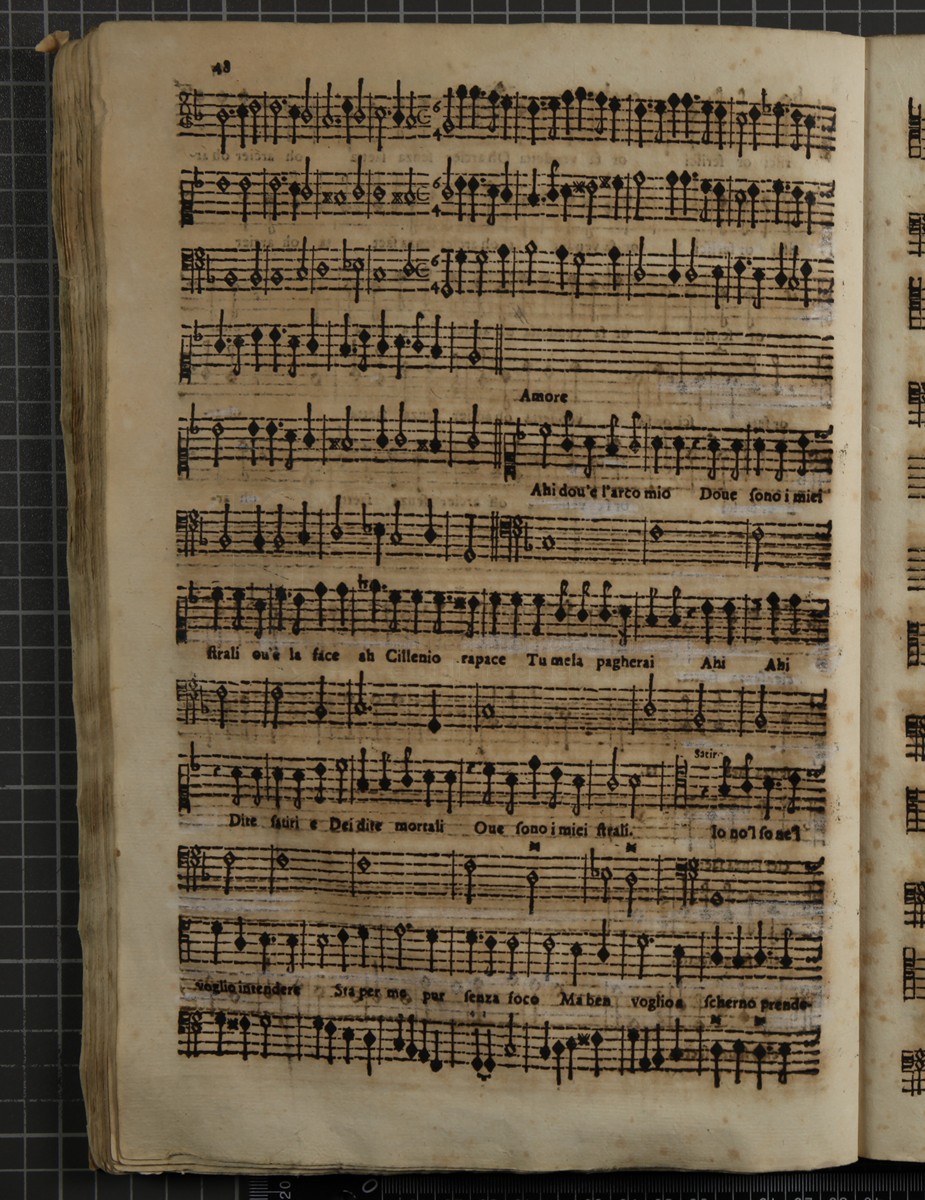 48
Amore
Ahi dou'e l'arco mio Doue sono i miei
strali ou'è la face ah Cillenio rapace Tu mela pagherai Ahi Ahi
Satir
Dite satiri e Dei dite mortali Oue sono i miei strali.
Io no'l so ne'l
voglio intendere Sta per me pur senza foco Ma ben voglio a scherno prende-